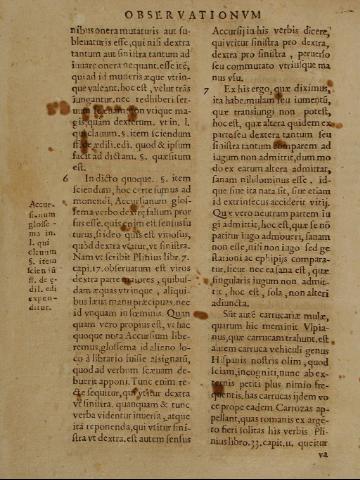 OBSERVATIONVM
nibus onera mutaturis aut su-
bleuaturis esse, qui nisi dextra
tantum aut sinistra tantum ad
iuuare onera nequeant. esse ité,
qui ad id muneris æque vtrin-
que valeant, hoc est, velut trãs
iungantur. nec redhiberi ser-
uum vtique ma-
gis, quam dexterum. vtin. l.
qui clauum. §. item sciendum
de ædili. edi. quod & ipsum
facit ad dictam. §. quæsitum
est.
6 In dicto quoque. §. item
sciendum, hoc certe sumus ad
monendi, Accursianum glos-
sema verbo dextra, falsum pror
sus esse, quis enim est sensus fu-
turus, si ideo quis est vitiosus,
quòd dextra vtatur, vt sinistra.
Nam vt scribit Plinius libr. 7.
capi. 17. obseruatum est viros
dextra parte quibus-
dam æquas vtrinque, aliqui-
bus læuas manu præcipuas, nec
id vnquam in fœminis. Quan
quam vero propius est, vt hac
quoque nota Accursium libe-
remus, glossema id alieno lo-
co à librario fuisse assignatũ,
quod ad verbum scæuam de-
buerit apponi. Tunc enim re-
cte sequitur, qui vtitur dextra
vt sinistra. quanquam & tunc
verba videntur inuersa, atque
ita reponenda, qui vtitur sini-
stra vt dextra. est autem sensus
Accur-
sianum
glosse-
ma in.
l. qui
clauum
§. item
scien
ff. de ę-
dil. edi
expen-
ditur.
Accursij in his verbis dicere,
qui vtitur sinistra pro dextra,
dextra pro sinistra, peruerso
seu commutato vtriusque ma
nus vsu.
7 Ex his ergo, quæ diximus,
ita habe, mulam seu iumentũ,
quæ transiungi non potest,
hoc est, quæ altera quidem ex
parte seu dextera tantum seu
sinistra tantum parem ad
iugum non admittit, dum mo
do ex earum altera admittat,
sanam nihilominus esse, id-
que sine ita nata sit, siue etiam
id extrinsecus acciderit vitij.
Quæ vero neutram partem iu
gi admittit, hoc est, quæ se nõ
patitur iugo admoueri, sanam
non esse, nisi non iugo sed ge
stationi ac ephippijs compara-
tur, sicut nec ea sana est, quæ
singularis iugum non admit-
tit, hoc est, sola, non alteri
adiuncta.
Sũt autẽ carrucariæ mulæ,
quarum hic meminit Vlpia-
nus, quæ carrucam trahunt. est
autem carruca vehiculi genus
Hispanis nostris olim, quod
sciam, incogniti, nunc ab ex-
ternis petiti plus nimio fre-
quentis, has carrucas idem vo
ce prope eadem Carrozas ap-
pellant, quas romanis ex argẽ-
to fieri solitas his verbis Pli-
nius libro. 33. capit. 11. queritur
va